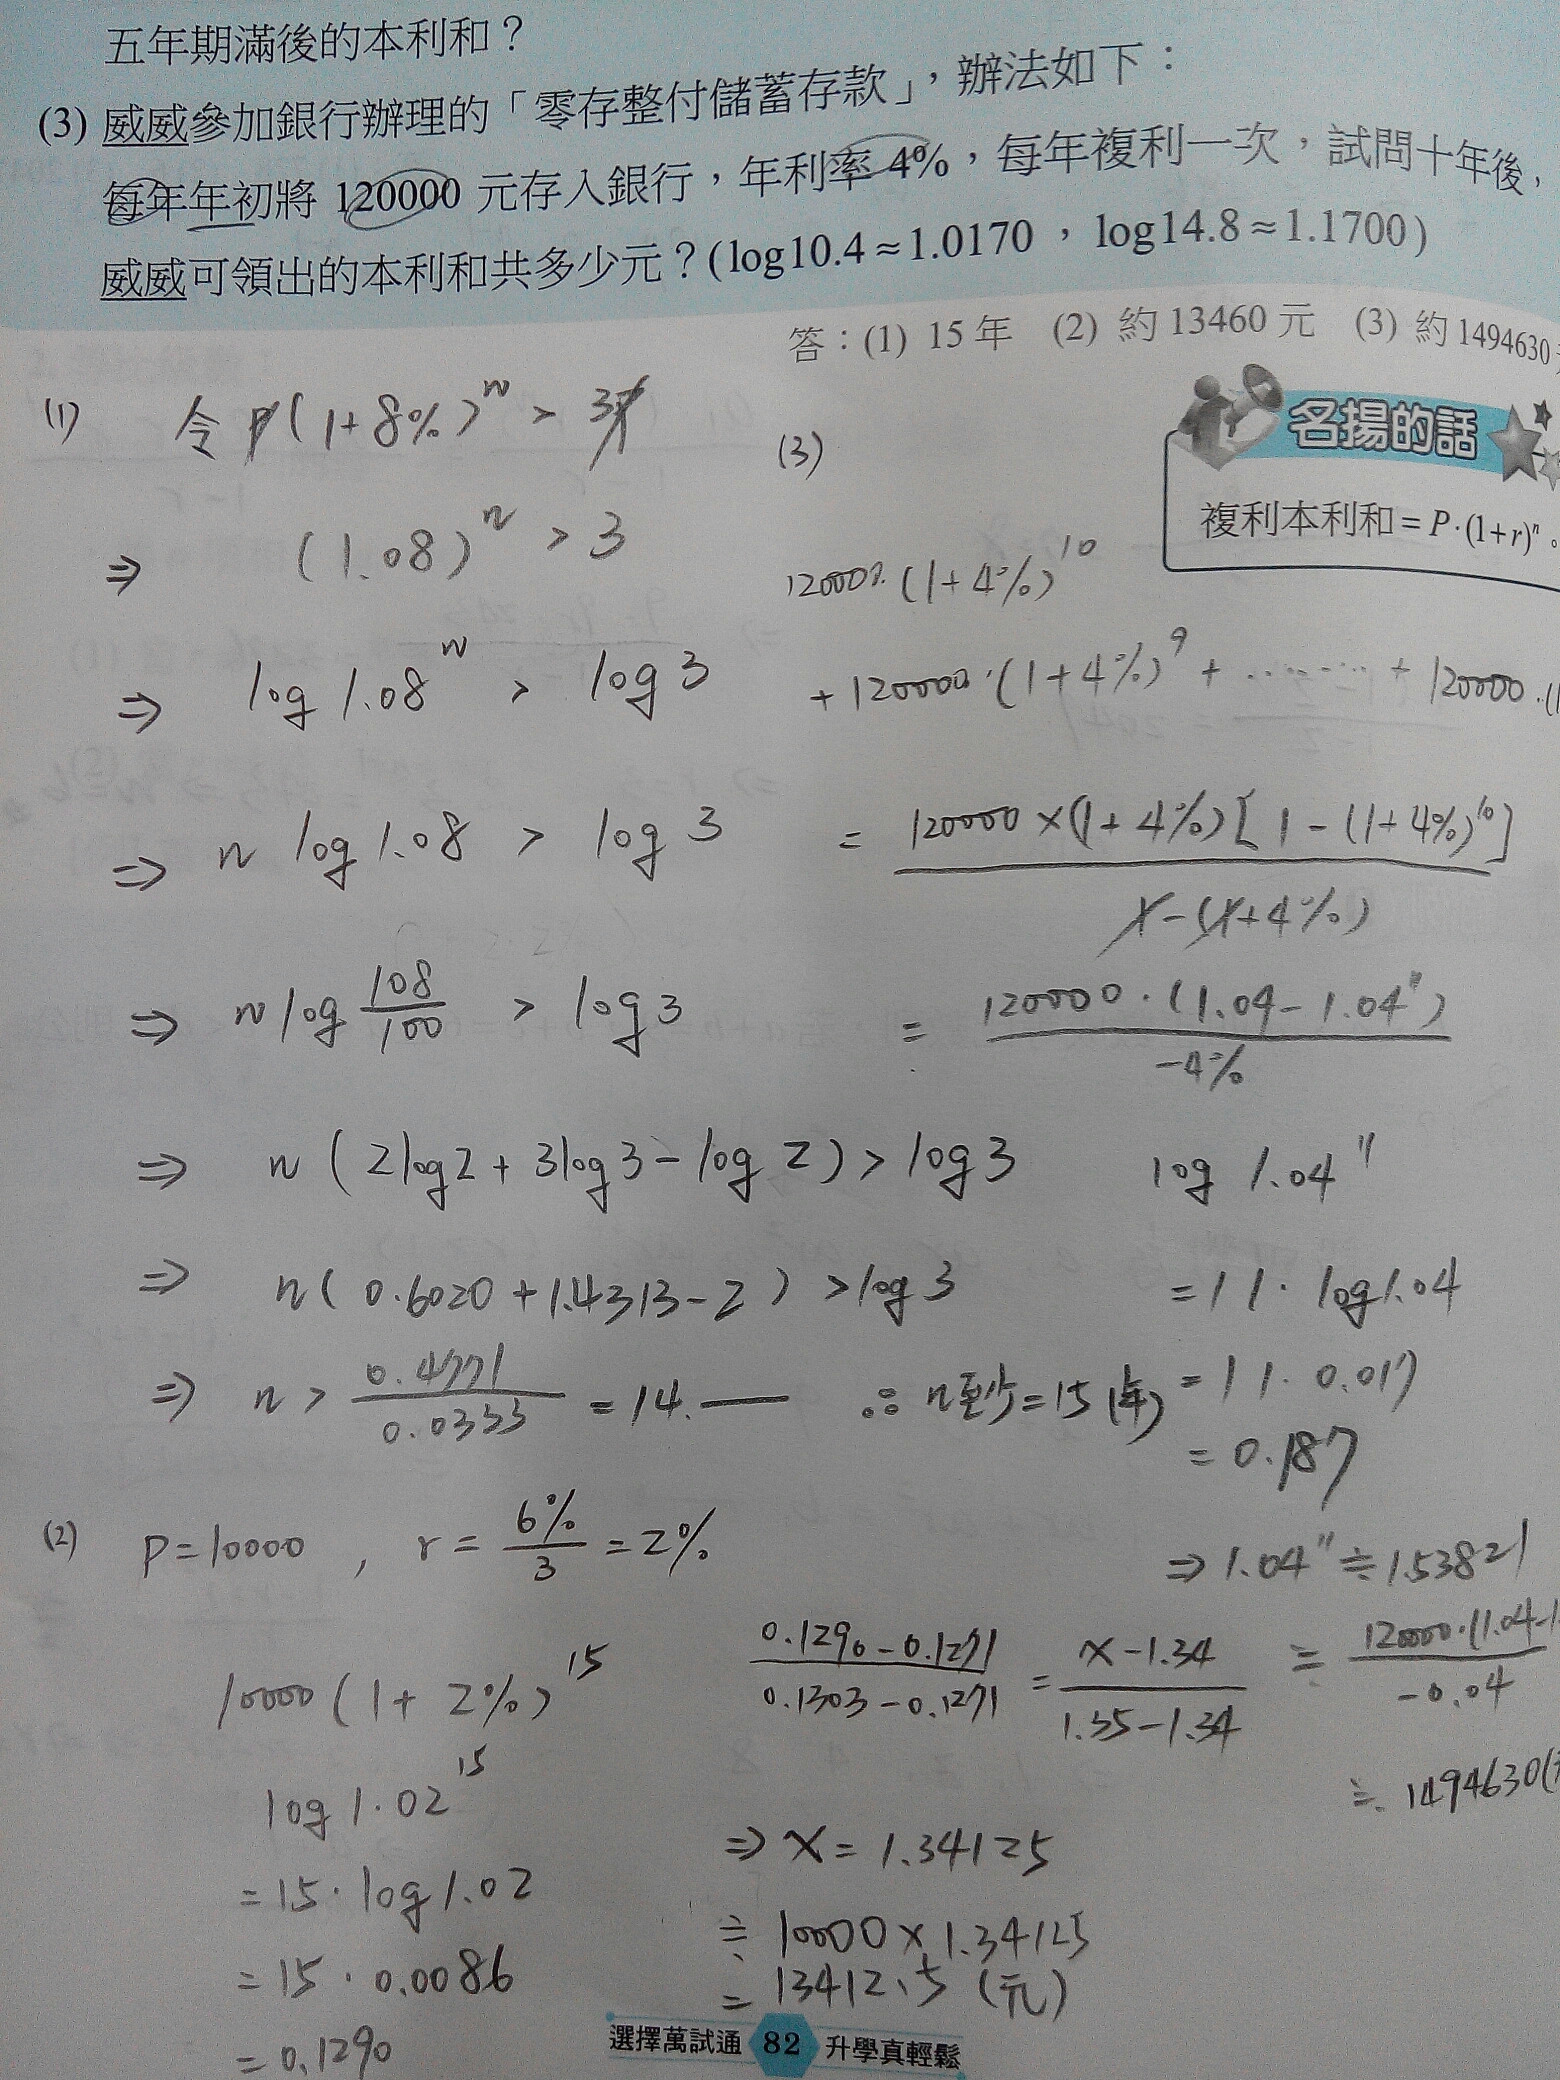 五年期滿後的本利和？
(3) 威威參加銀行辦理的「零存整付儲蓄存款」，辦法如下：
每年年初將 120000 元存入銀行，年利率 4%，每年複利一次，試問十年後，
威威可領出的本利和共多少元？(log10.4≈1.0170，log14.8≈1.1700)
答：(1) 15 年 (2) 約 13460 元 (3) 約 1494630
名揚的話
複利本利和 = P·(1+r)ⁿ。
(1) 令 P(1+8%)ⁿ > 3P
⇒ (1.08)ⁿ > 3
⇒ log 1.08ⁿ > log 3
⇒ n log 1.08 > log 3
⇒ n log 108/100 > log 3
⇒ n (2log2 + 3log3 - log 2) > log 3
⇒ n (0.6020 + 1.4313 - 2) > log 3
⇒ n > 0.4771/0.0333 = 14.— ∴ n至少=15 (年)
(2) P=10000, r = 6%/3 = 2%
10000 (1+2%)¹⁵
log 1.02¹⁵
= 15 · log 1.02
= 15 · 0.0086
= 0.1290
(0.1290-0.1271)/(0.1303-0.1271) = (x-1.34)/(1.35-1.34)
⇒ x = 1.34125
≒ 10000 × 1.34125
= 13412.5 (元)
(3)
120000·(1+4%)¹⁰
+ 120000·(1+4%)⁹ + ········ + 120000·(1
= 120000×(1+4%)[1-(1+4%)¹⁰]/1-(1+4%)
= 120000·(1.04-1.04¹¹)/-4%
log 1.04¹¹
= 11· log1.04
= 11· 0.017
= 0.187
⇒ 1.04¹¹ ≒ 1.53821
≒ 120000·(1.04-1/-0.04
≒ 1494630(
選擇萬試通 82 升學真輕鬆